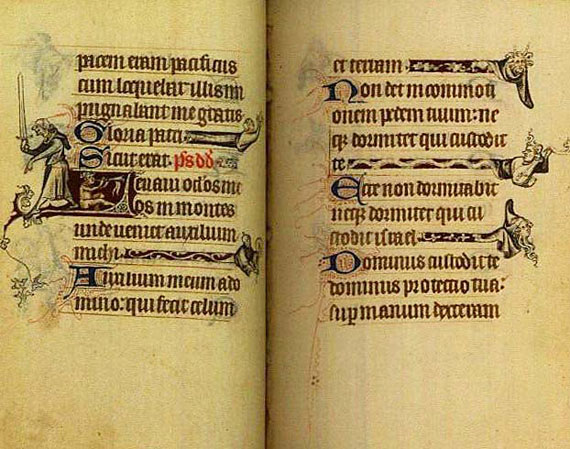 pacem eram pacificus
cum loquebar illis im
pugnabant me gratis
Gloria patri
Sicut erat. p̄s dd̄
Levavi oc̄los me
os in montes
unde veniet auxilium
michi
Auxilium meum a do
mino: qui fecit celum
et terram.
Non det in commoti
onem pedem tuum: ne
q̄ dormitet qui custodit
te
Ecce non dormitabit
neq̄ dormiet qui cu
stodit israel.
Dominus custodit te
dominus protectio tua:
sup̄ manum dexteram